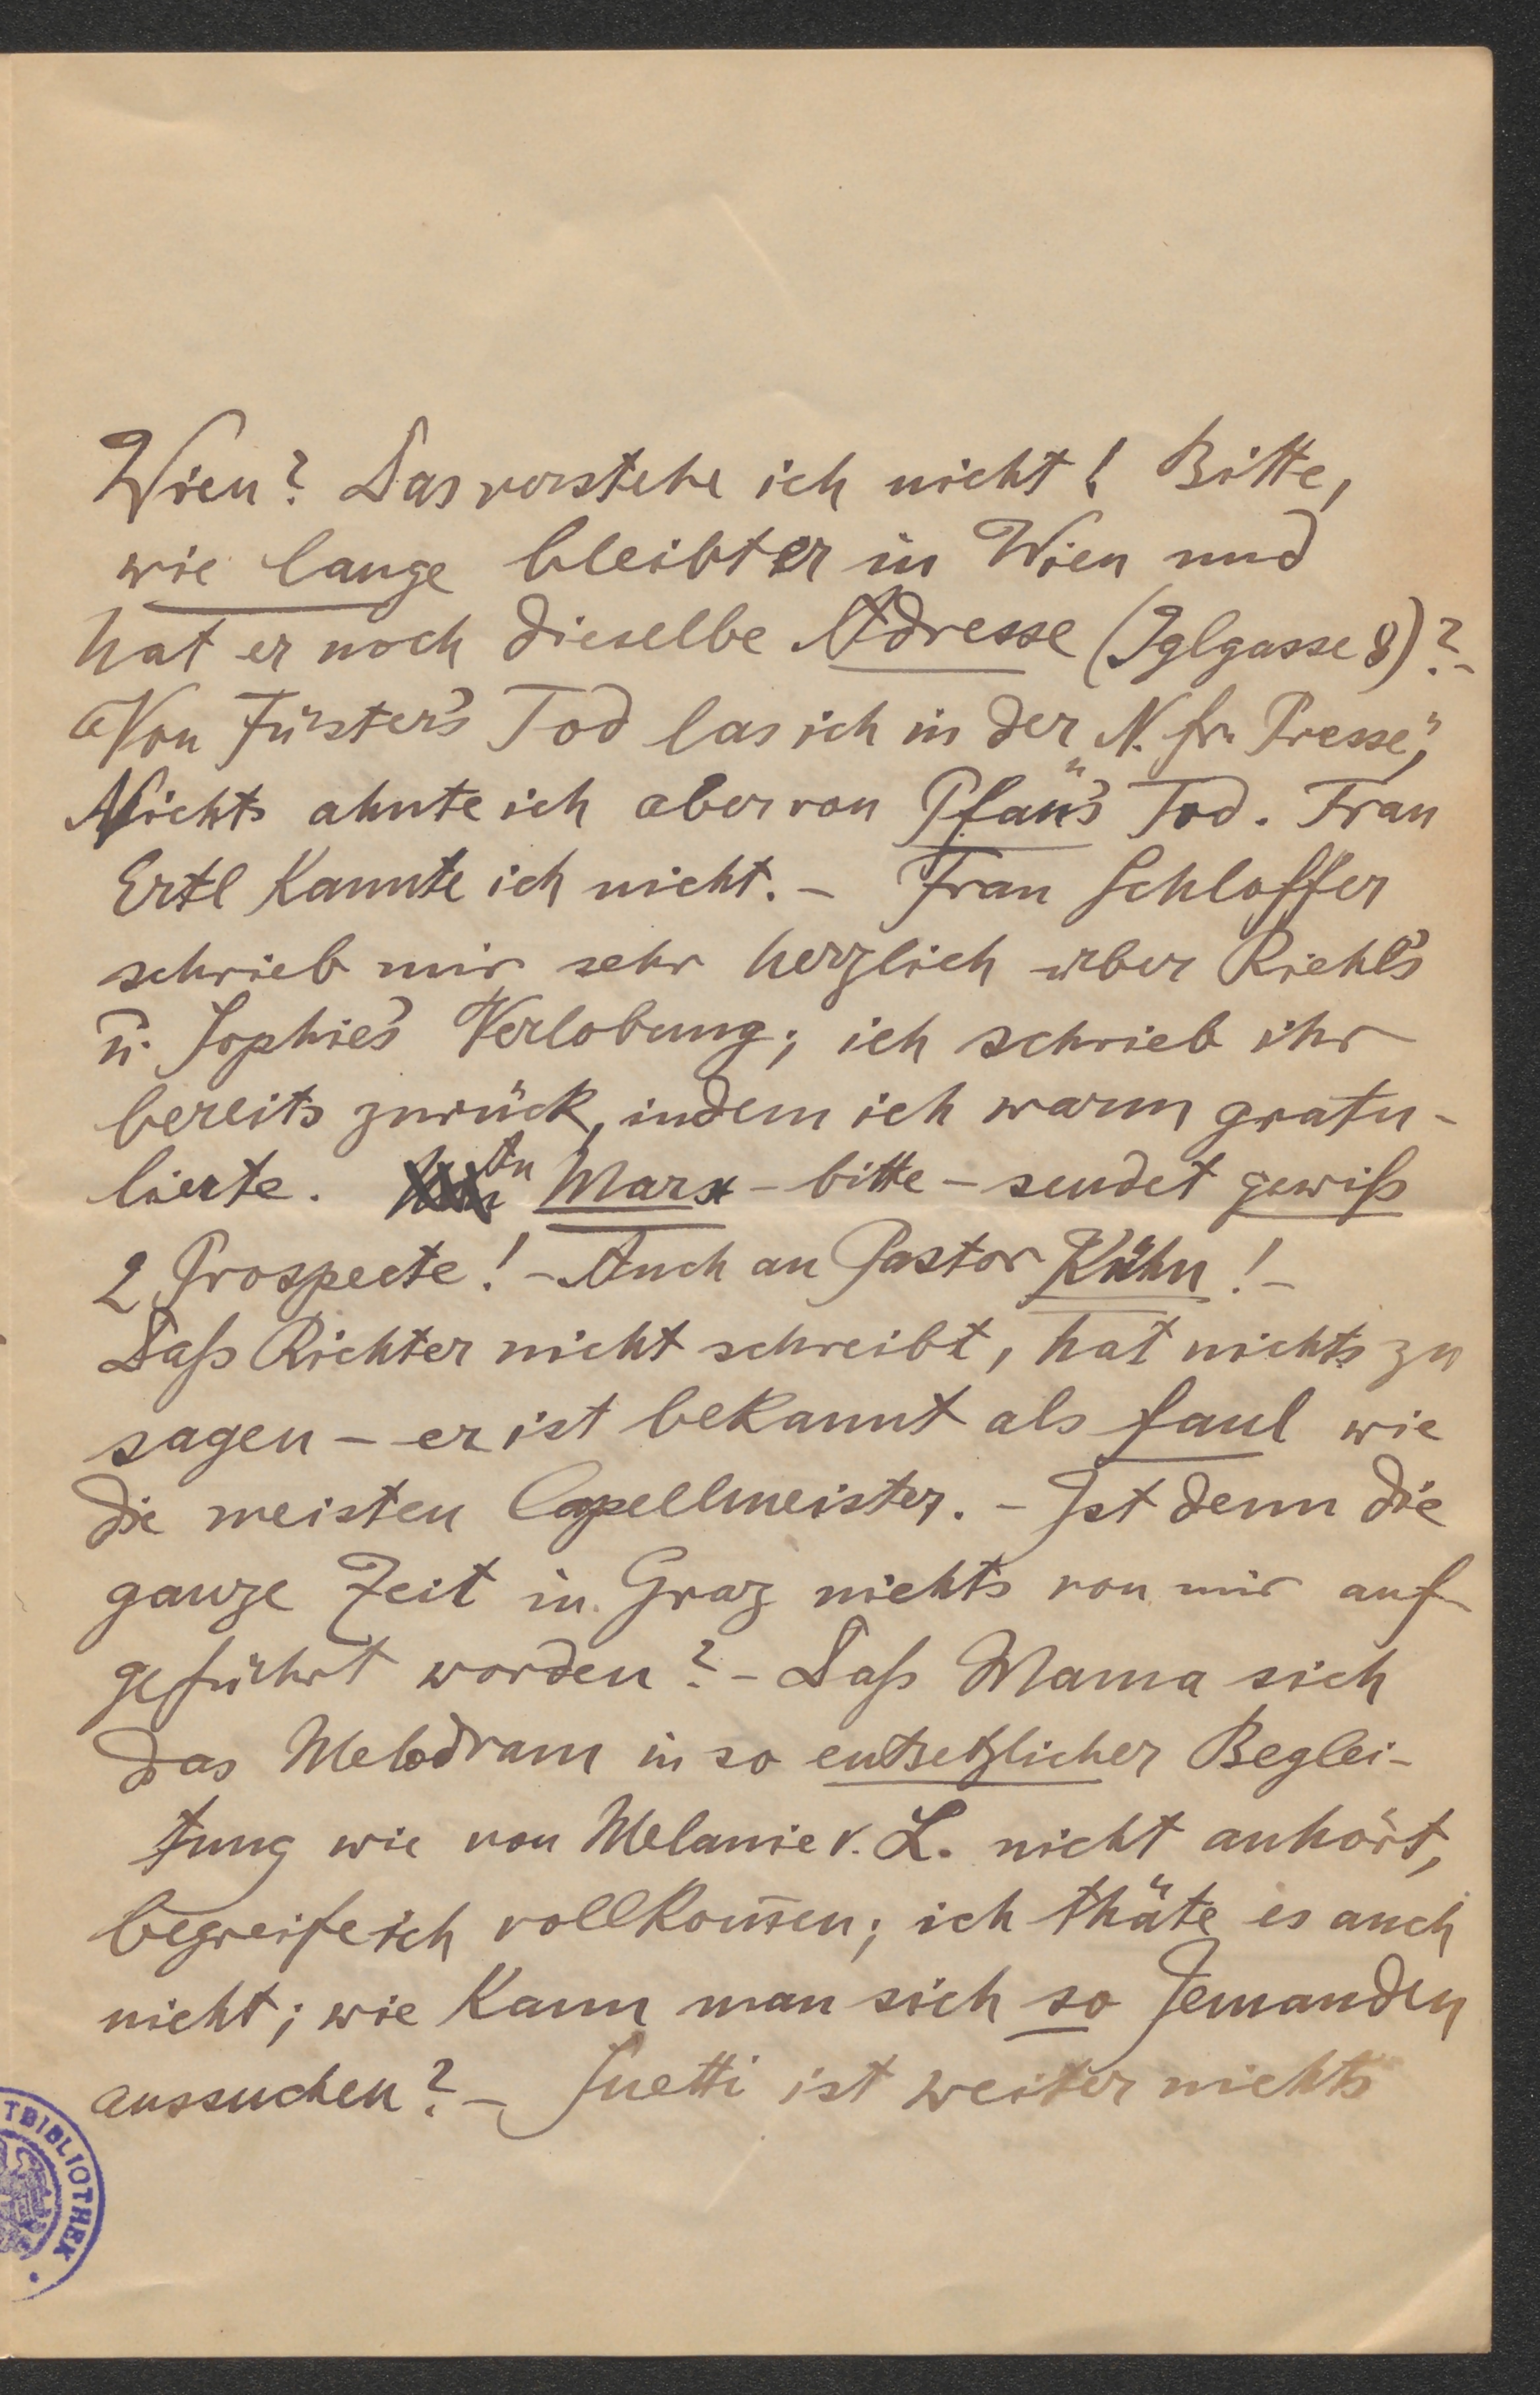 Wien? Das verstehe ich nicht! Bitte,
wie lange bleibt er in Wien und
hat er noch dieselbe Adresse (Iglgasse 8)? -
Von Fürster's Tod las ich in der „N. fr. Presse“,
Nichts ahnte ich aber von Pfau's Tod. Frau
Ertl kannte ich nicht. - Frau Schloffer
schrieb mir sehr herzlich über Riehl's
u. Sophie's Verlobung; ich schrieb ihr
bereits zurück, indem ich warm gratu-
lierte. An Marx - bitte - sendet gewiß
2 Prospecte! - Auch an Pastor Kühn! -
Daß Richter nicht schreibt, hat nichts zu
sagen - er ist bekannt als faul wie
die meisten Capellmeister. - Ist denn die
ganze Zeit in Graz nichts von mir auf
geführt worden? - Daß Mama sich
das Melodram in so entsetzlicher Beglei-
tung wie von Melanie v. L. nicht anhört,
begreife ich vollkom̄en; ich thäte es auch
nicht; wie kann man sich so Jemanden
aussuchen? - ist weiter nichts
TBIBLIOTHEK